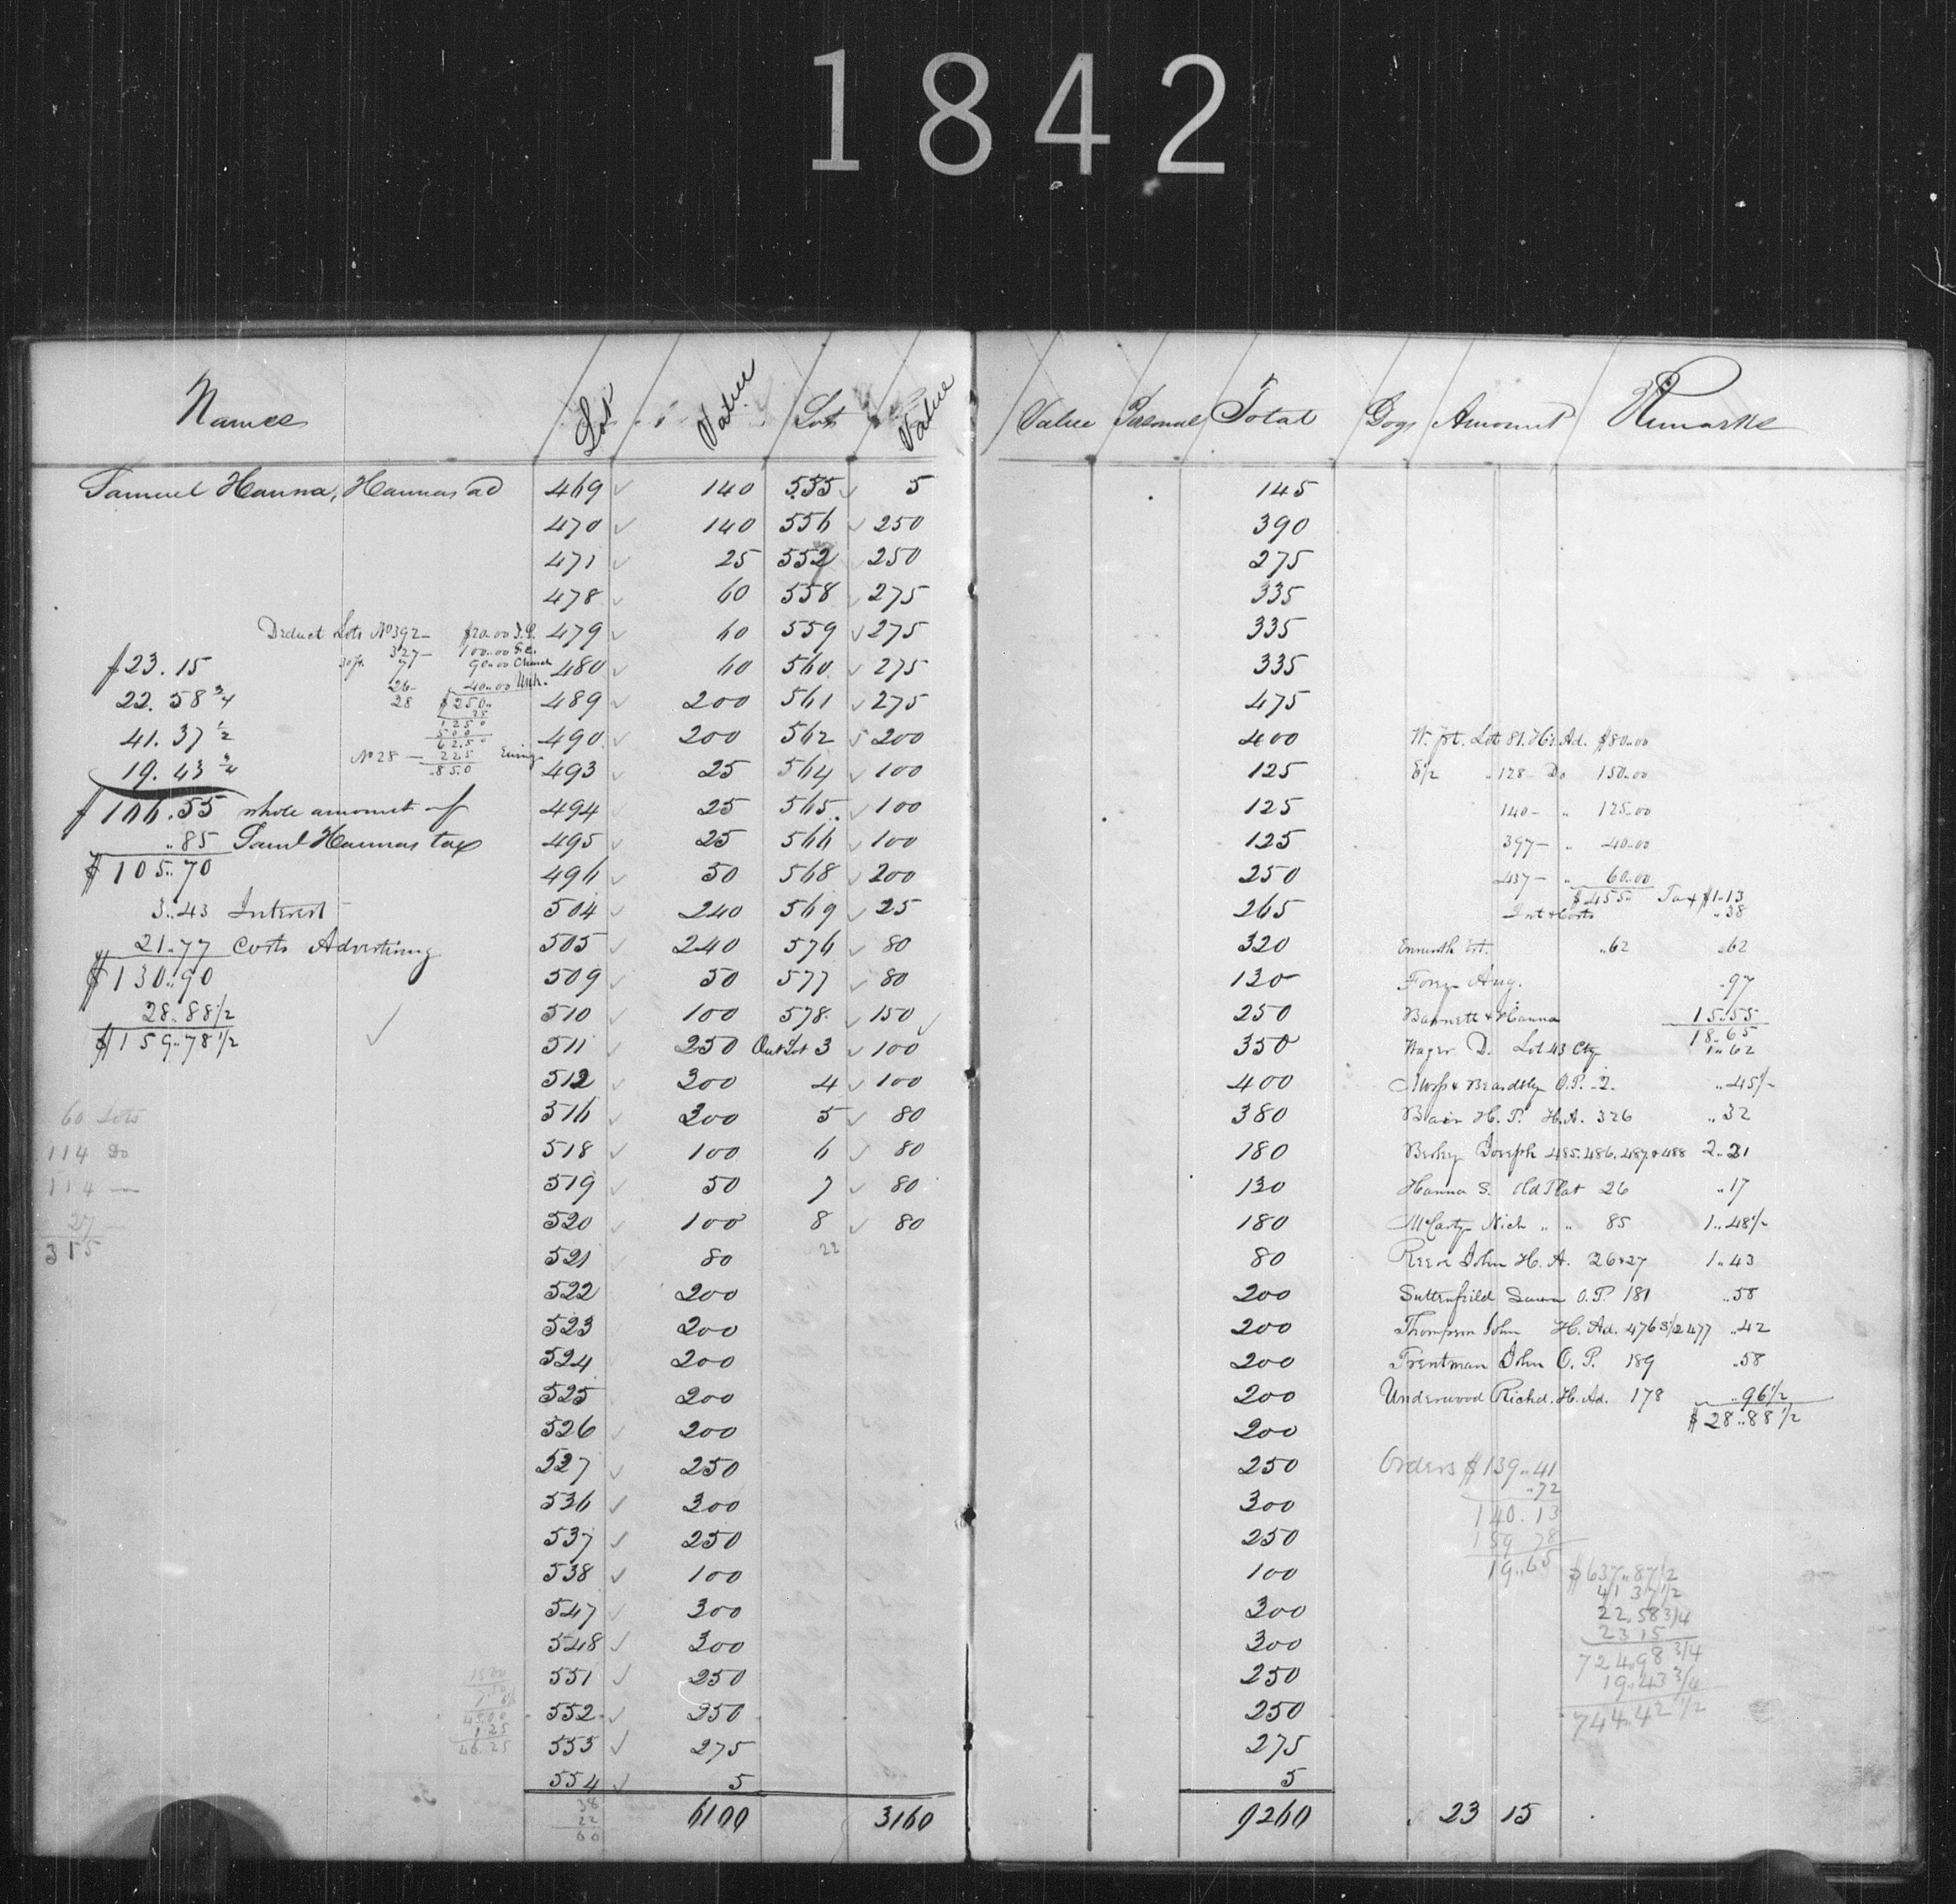 1842
Names Lot Value Lot Value
Samuel Hanna, Hannas ad 469 140 555 5
470 140 556 250
471 25 557 250
478 60 558 275
Deduct Lots No 392 – $20.00 479 60 559 275
327 – 100.00
$23.15 90.00 Church 480 60 560 275
26 – 40.00
22.58 3/4 28 $250. 489 200 561 275
25
1250
500
62.50
41.37 1/2 490 200 562 200
No 28 – 225 Ewing
19.43 3/4 .850 493 25 564 100
$106.55 whole amount of 494 25 565 100
..85 Saml Hannas tax 495 25 566 100
$105..70 496 50 568 200
3..43 Interest 504 240 569 25
21..77 Costs Advertising 505 240 576 80
$130..90 509 50 577 80
28..88 1/2 510 100 578 150
$159..78 1/2 511 250 Out Lot 3 100
512 300 4 100
60 Lots 516 300 5 80
114 Do 518 100 6 80
114 — 519 50 7 80
27 — 520 100 8 80
315 521 80 22
522 200
523 200
524 200
525 200
526 200
527 250
536 300
537 250
538 100
547 300
548 300
551 250
552 250
45.00
1 25
46.25 553 275
554 5
38
22
60
6100 3160
Value Personal Total Dogs Amount Remarks
145
390
275
335
335
335
475
400 W. pt. Lot 81. H's Ad. $80..00
125 E 1/2 " 128 – Do 150..00
125 140 – " 125..00
125 397 – " 40..00
250 437 – " 60..00
$455.. Tax $1..13
265 Int & Costs ..38
320 Ennworth Est. ..62 ..62
130 Forye Aug. ..97
250 Barnett & Hanna 15..55
18..65
350 Wager D. Lot 43 Cty 1..62
400 Morss & Beardsley O.P. 2. ..45 1/2
380 Blair H. P. H.A. 326 ..32
180 Berkey Joseph 485. 486. 487 & 488 2..21
130 Hanna S. Old Plat 26 ..17
180 McCarty Nich " " 85 1..48 1/2
80 Reed John H. A. 26 & 27 1..43
200 Suttenfield Laura O.P. 181 ..58
200 Thompson John H. Ad. 476 S 1/2 477 ..42
200 Trentman John O. P. 189 ..58
200 Underwood Richd. H. Ad. 178 ..96 1/2
200 $28..88 1/2
250 Orders $139..41
..72
300 140.13
250 159 78
100 19..65 $637..87 1/2
41 37 1/2
300 22.58 3/4
23 15
300 724.98 3/4
250 19.43 3/4
250 744.42 1/2
275
5
9260 23 15